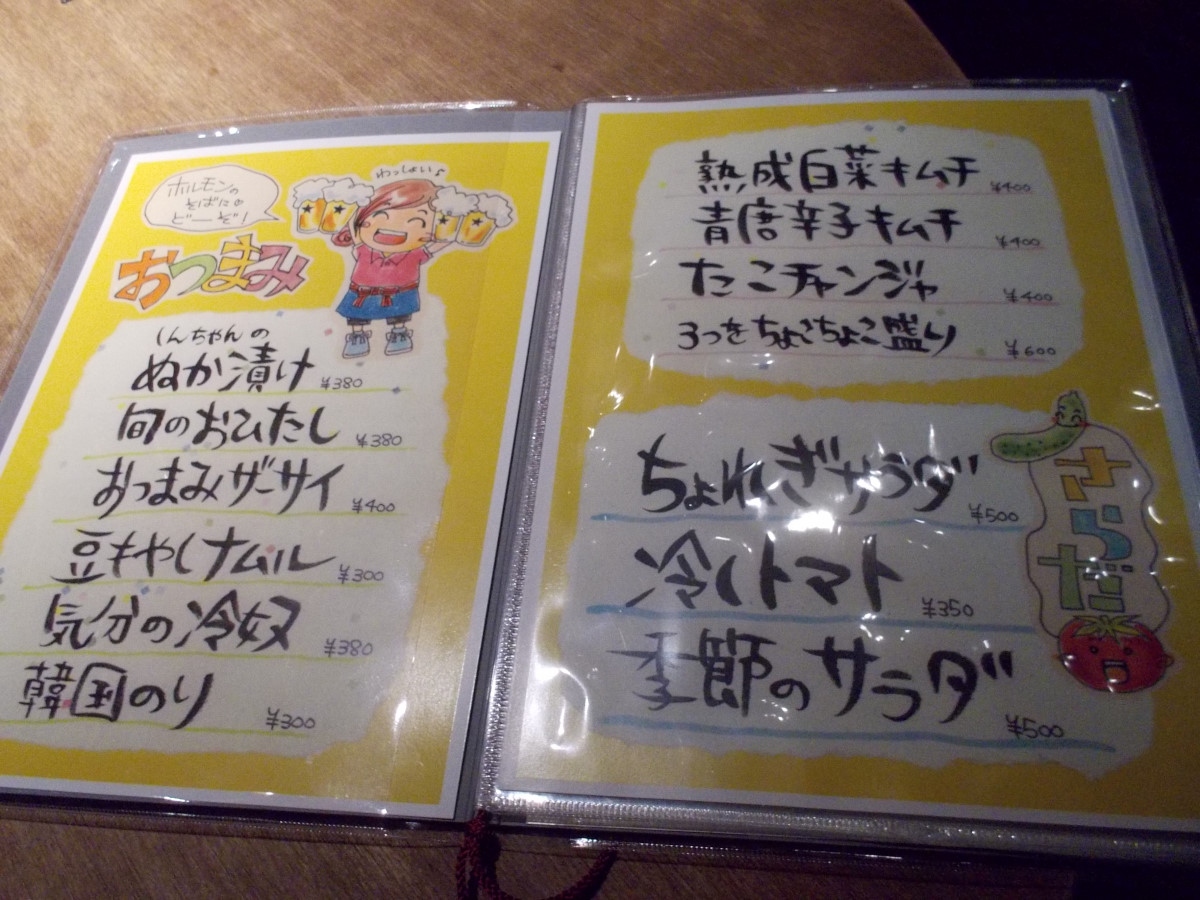 ホルモンの
そばにゅ
どーぞ!
わっしょい♪
おつまみ
しんちゃんの
ぬか漬け ¥380
旬のおひたし ¥380
おつまみザーサイ ¥400
豆もやしナムル ¥300
気分の冷奴 ¥380
韓国のり ¥300
熟成白菜キムチ ¥400
青唐辛子キムチ ¥400
たこチャンジャ ¥400
3つをちょこちょこ盛り ¥600
さらだ
ちょれぎサラダ ¥500
冷しトマト ¥350
季節のサラダ ¥500